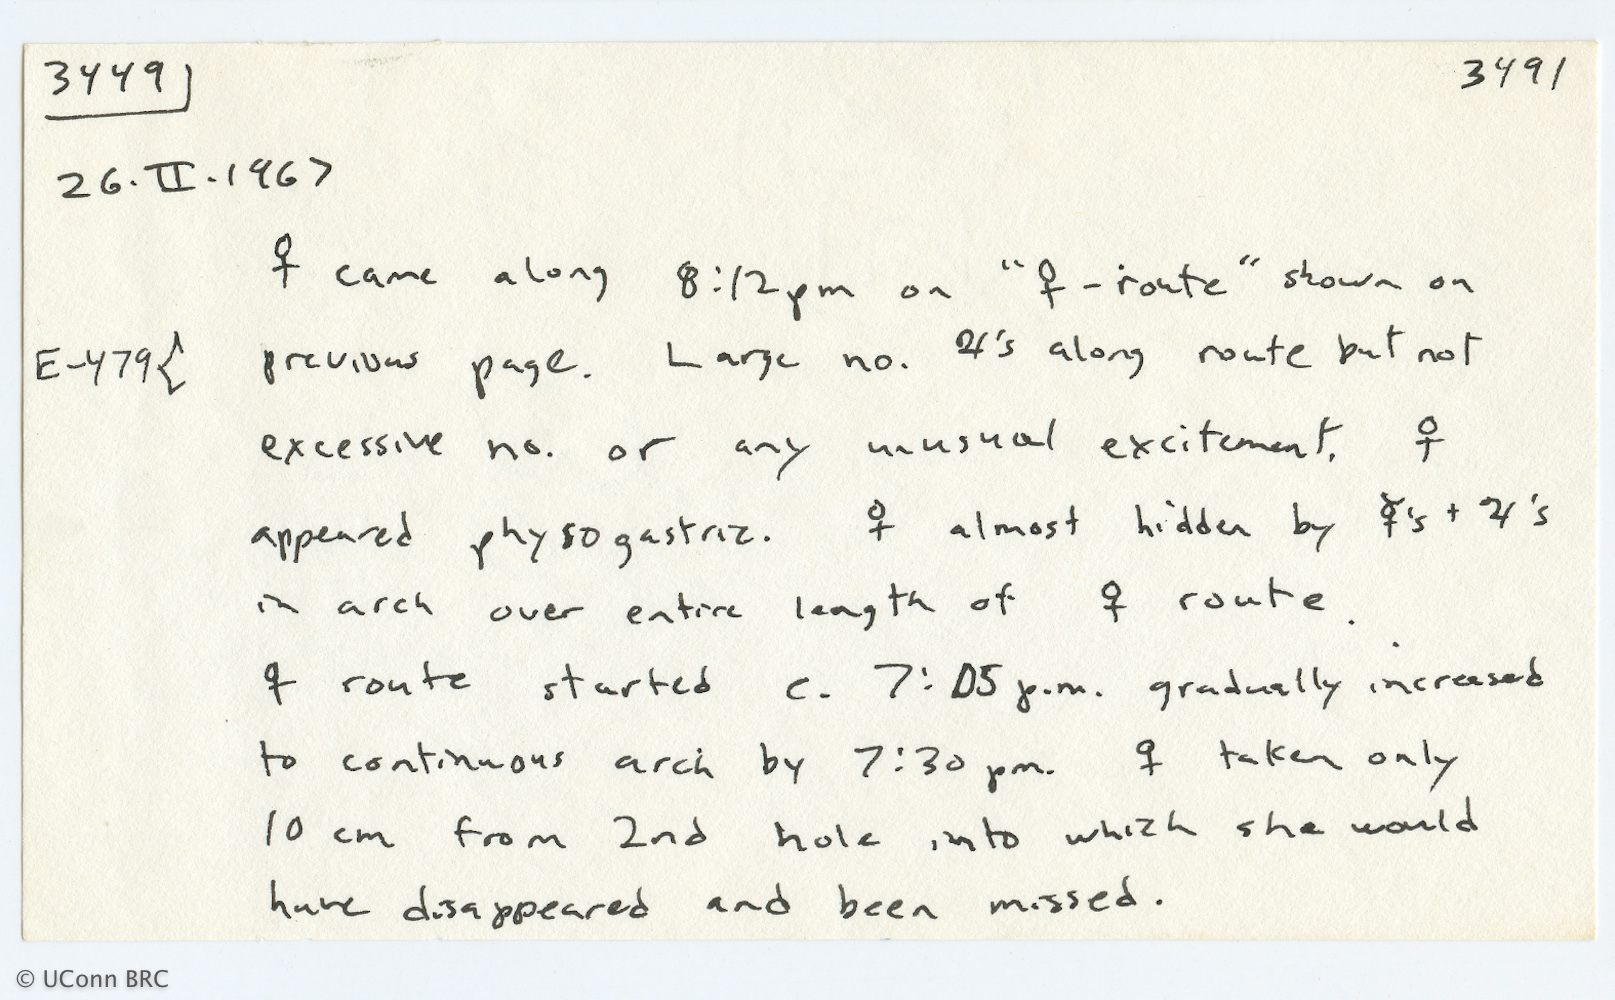 3449 3491
26.II.1967
♀ came along 8:12pm on "♀-route" shown on
E-479{ previous page. Large no. ♃'s along route but not
excessive no. or any unusual excitement. ♀
appeared physogastric. ♀ almost hidden by ☿'s + ♃'s
in arch over entire length of ♀ route.
♀ route started c. 7:05 p.m. gradually increased
to continuous arch by 7:30 pm. ♀ taken only
10 cm from 2nd hole into which she would
have disappeared and been missed.
© UConn BRC